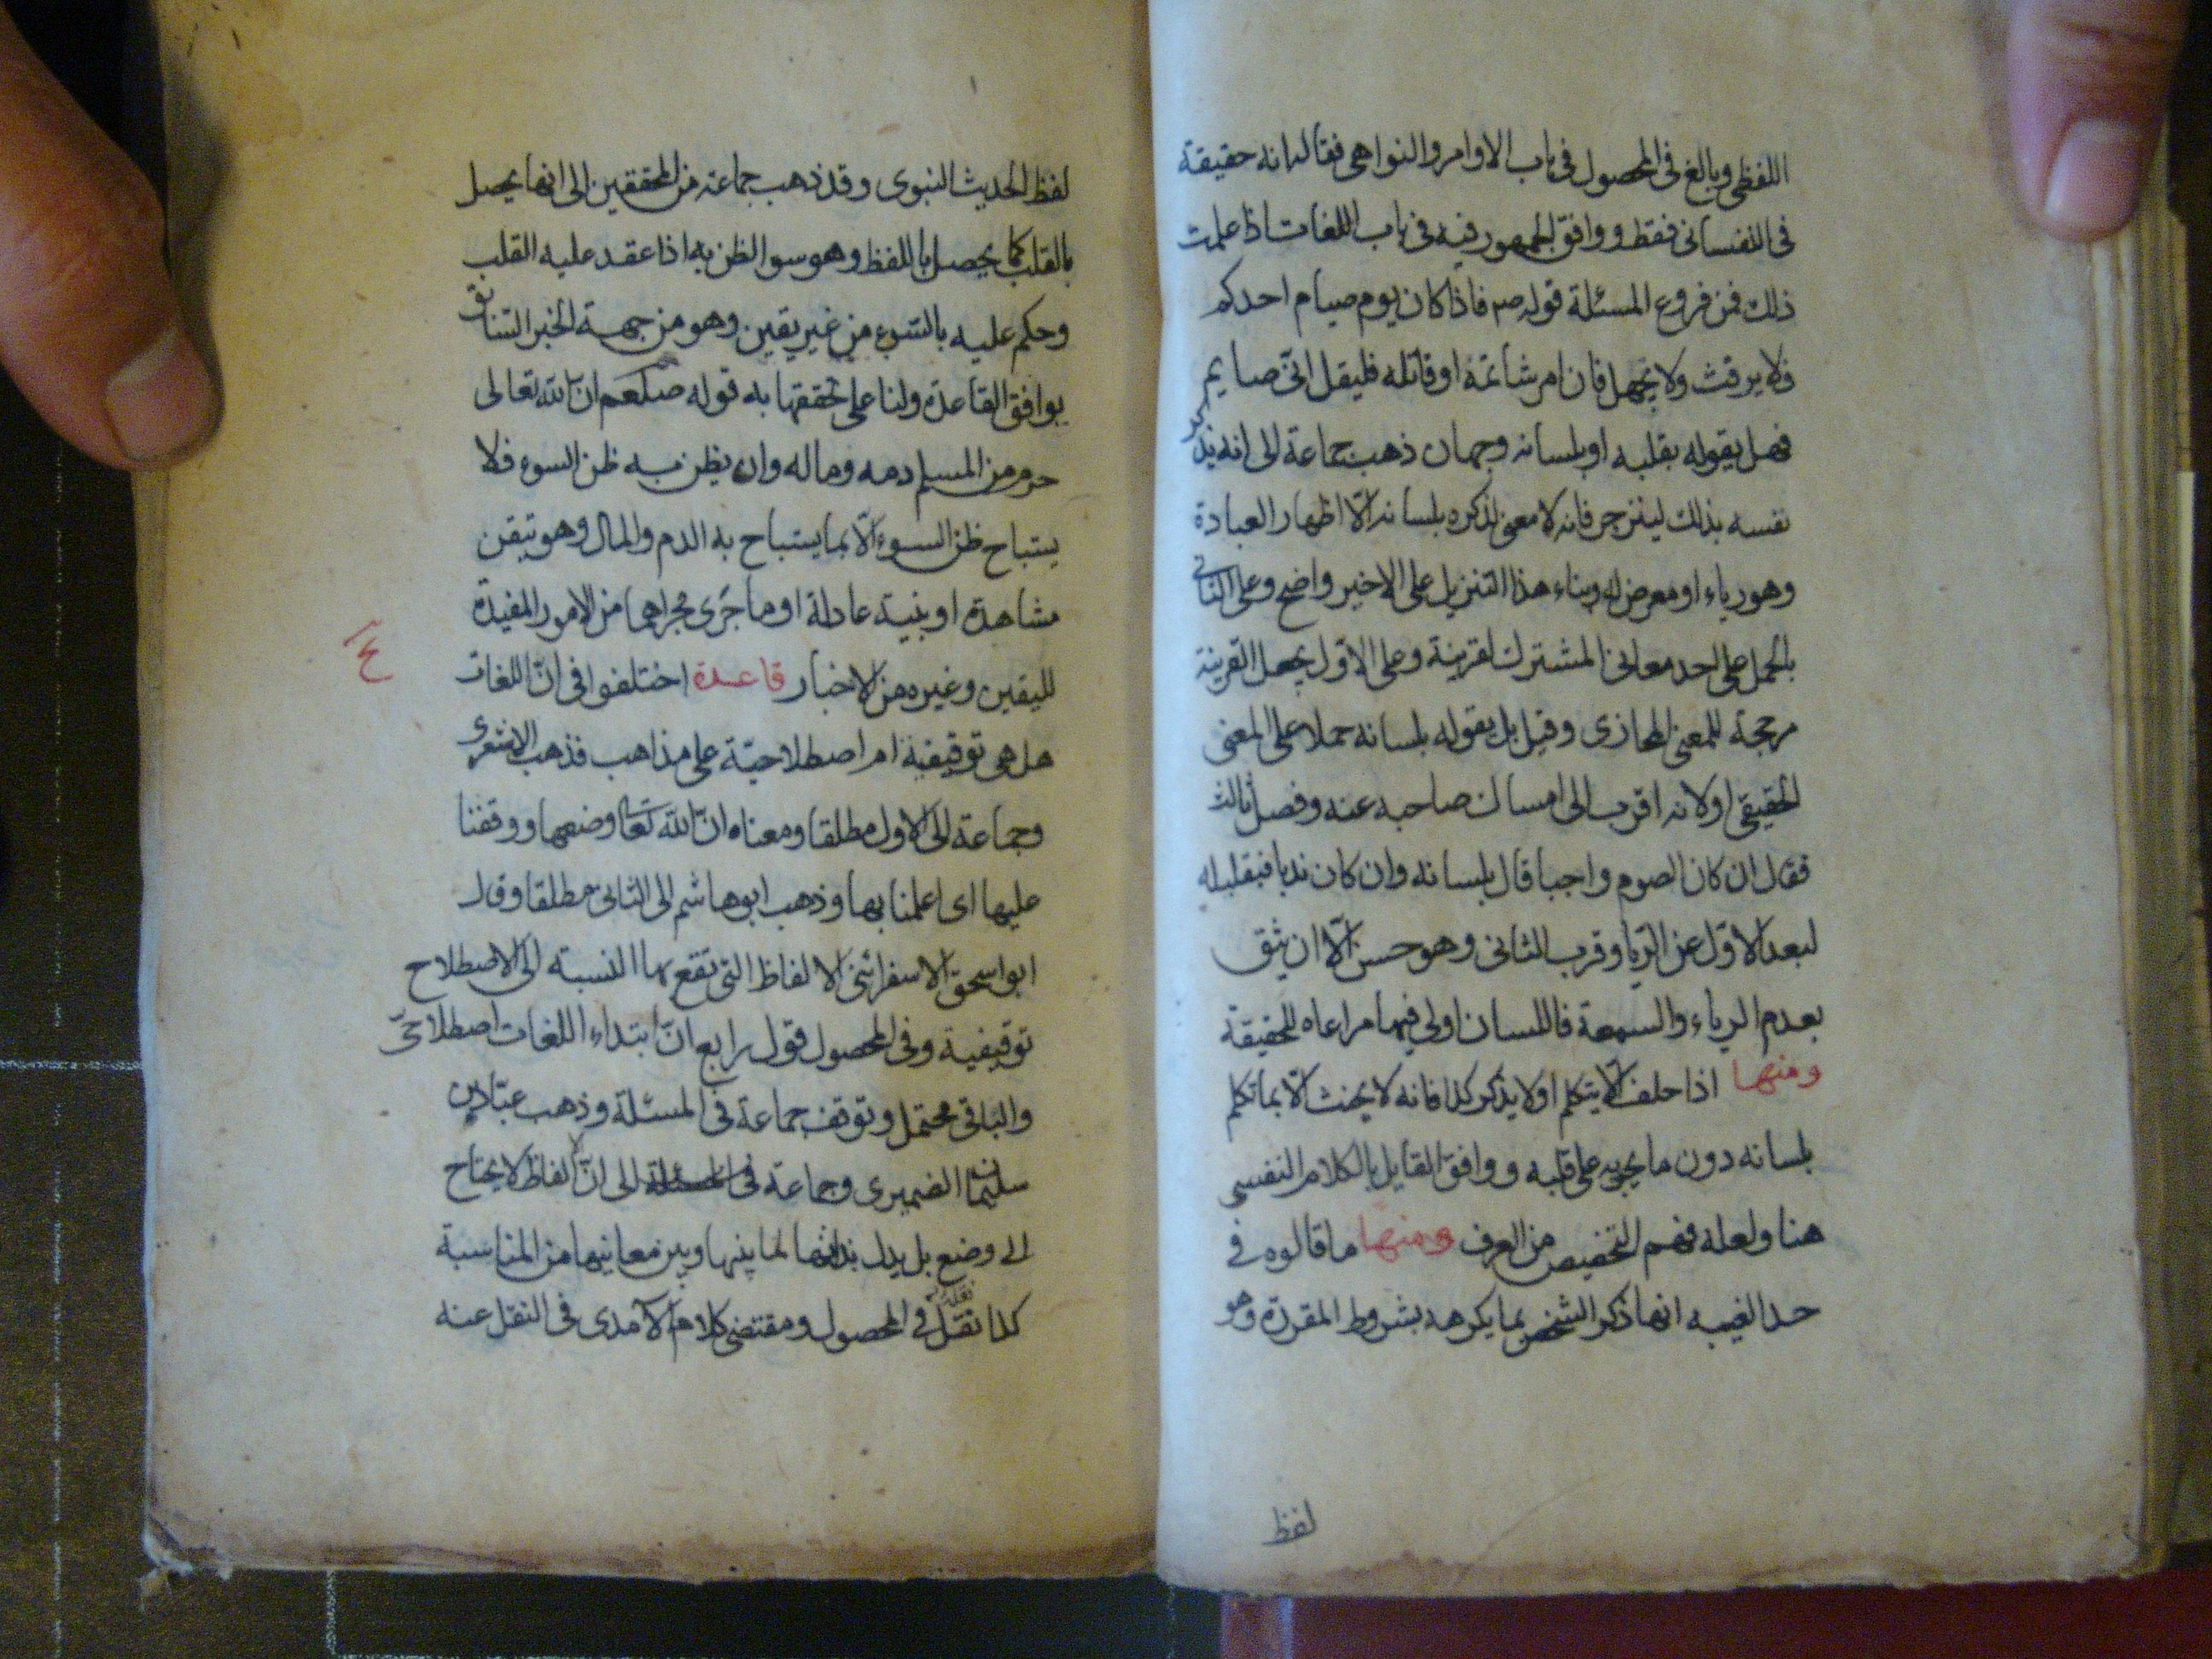 اللفظي وبالغ في المحصول في باب الاوامر والنواهي فقال انه حقيقة
في النفساني فقط ووافق الجمهور فيه في باب اللغات اذا علمت
ذلك فمن فروع المسئلة قوله ص فاذا كان يوم صيام احدكم
فلا يرفث ولا يجهل فان امر شاتمه او قاتله فليقل اني صايم
فهل يقوله بقلبه او بلسانه وجهان ذهب جماعة الى انه يذكر
نفسه بذلك لينزجر فانه لا معنى لذكره بلسانه الا اظهار العبادة
وهو رياء او معرض له وبناء هذا التنزيل على الاخير واضح وعلى الثاني
بالحمل على احد معاني المشترك لقرينة وعلى الاول يجعل القرينة
مرجحة للمعنى المجازى وقيل بل يقوله بلسانه حملا على المعنى
الحقيقي او لانه اقرب الى امساك صاحبه عنه وفصل ثالث
فقال ان كان الصوم واجبا قال بلسانه وان كان ندبا فبقلبه
لبعد الاول عن الريا وقرب الثاني وهو حسن الا ان يثق
بعدم الرياء والسمعة فاللسان اولى فيهما مراعاه للحقيقة
ومنها اذا حلف الا يتكلم او لا يذكر كذا فانه لا يحنث الا بما تكلم
بلسانه دون ما يجريه على قلبه ووافق القايل بالكلام النفسي
هنا ولعله فهم التخصيص من العرف ومنها ما قالوه في
حد الغيبه انها ذكر الشخص بما يكرهه بشروط المقررة وهو
لفظ
لفظ الحديث النبوى وقد ذهب جماعة من المحققين الى انها يحصل
بالقلب كما يحصل باللفظ وهو سوا الظن به اذا عقد عليه القلب
وحكم عليه بالسوء من غير يقين وهو من جهة الخبر السابق
يوافق القاعدة ولنا على تحققها به قوله صلعم ان الله تعالى
حرم من المسلم دمه وماله وان يظن به ظن السوء فلا
يستباح ظن السوء الا بما يستباح به الدم والمال وهو تيقن
مشاهدة او بينة عادلة او ما جرى مجراهما من الامور المفيدة
لليقين وغيره من الاخبار قاعدة اختلفوا في ان اللغات
هل هي توقيفية ام اصطلاحية على مذاهب فذهب الاشعرى
وجماعة الى الاول مطلقا ومعناه ان الله تعا وضعها ووقفنا
عليها اى اعلمنا بها وذهب ابو هاشم الى الثاني مطلقا وقال
ابو اسحق الاسفرائني الالفاظ التي تقع بها النسبة الى الاصطلاح
توقيفية وفي المحصول قول رابع ان ابتداء اللغات اصطلاحي
والباقي محتمل وتوقف جماعة في المسئلة وذهب عباد بن
سليمان الضميرى وجماعة الى ان الفاظ لا يحتاج
الى وضع بل يدل بذاتها لما بينها وبين معانيها من المناسبة
كذا نقل في المحصول ومقتضى كلام الآمدى في النقل عنه